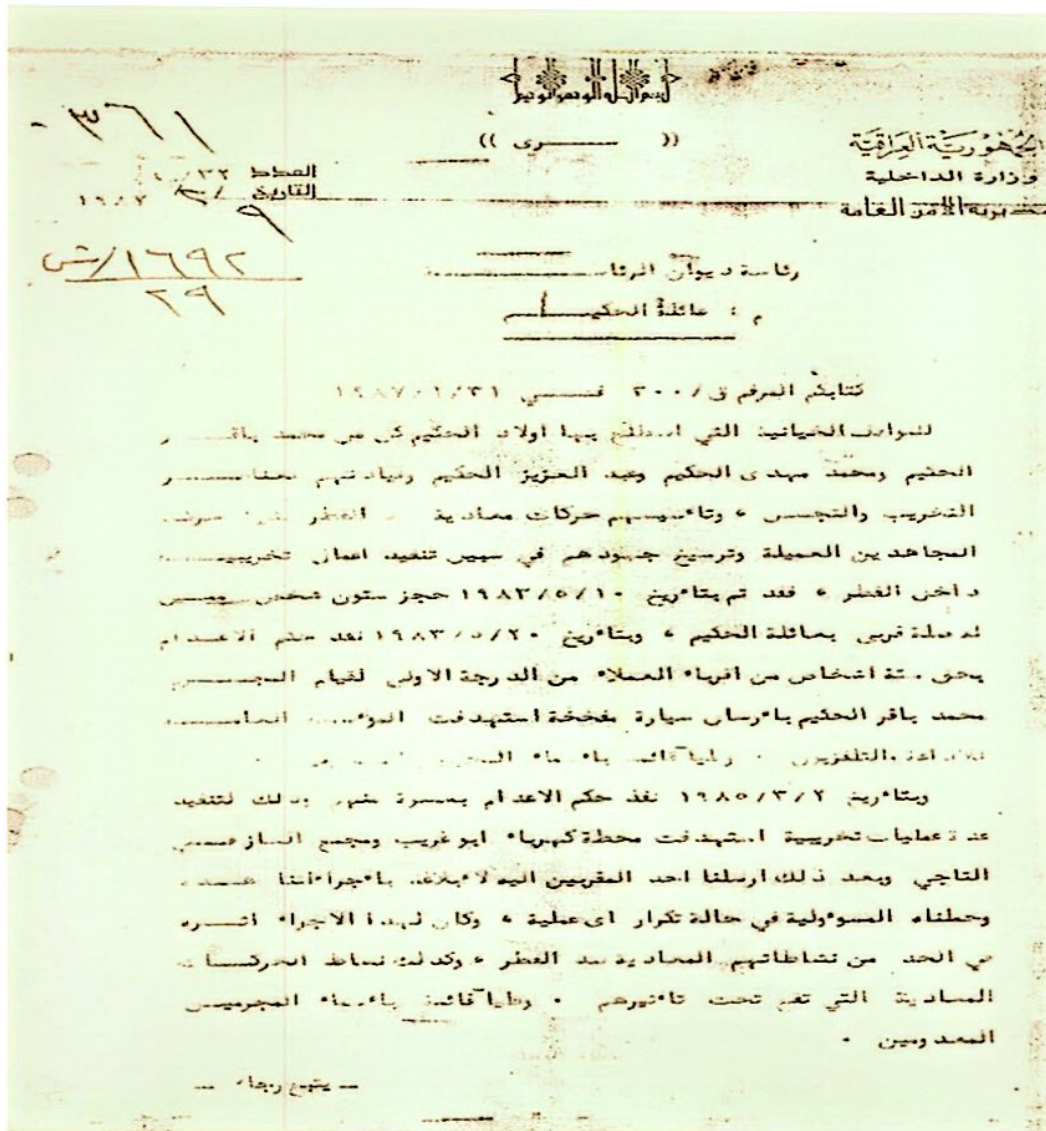 بسم الله الرحمن الرحيم
٣٦٦١
(( ســـرى ))
الجمهورية العراقية
وزارة الداخلية
مديرية الامن العامة
العدد
التاريخ
١٦٩٢/ش
٢٩
رئاسة ديوان الرئاســـة
م : عائلة الحكيـــم
كتابكم المرقم ق/٢٠٠ فـــي ١٩٨٧/١/٣١
للمواقف الخيانية التي اضطلع بها اولاد الحكيم كل من محمد باقـــر
الحكيم ومحمد مهدى الحكيم وعبد العزيز الحكيم وقيادتهم لعناصـــر
التخريب والتجسس ، وتأسيسهم حركات معادية القطر
المجاهدين العميلة وترسيخ جهودهم في سبيل تنفيذ اعمال تخريبيـــة
داخل القطر ، فقد تم بتأريخ ١٩٨٣/٥/١٠ حجز ستون شخص
له صلة قربى بعائلة الحكيم ، وبتأريخ ١٩٨٣/٥/٢٠ نفذ حكم الاعـــدام
بحق ستة اشخاص من اقرباء العملاء من الدرجة الاولى لقيام المجـــرم
محمد باقر الحكيم بأرسال سيارة مفخخة استهدفت المؤسسة العامـــة
للاذاعة والتلفزيون . وطيا قائمة بأسماء
وبتأريخ ١٩٨٥/٣/٢ نفذ حكم الاعدام بعشرة منهم وذلك لتنفيذ
عدة عمليات تخريبية استهدفت محطة كهرباء ابو غريب ومجمع الغاز فـــي
التاجي وبعد ذلك ارسلنا احد المقربين اليه لابلاغه بأجراءاتنا هـــذه
وحملناه المسؤولية في حالة تكرار اى عملية ، وكان لهذا الاجراء اثـــره
في الحد من نشاطاتهم المعادية ضد القطر ، وكذلك نشاط الحركـــات
المعادية التي تقع تحت تأثيرهم . وطيا قائمة بأسماء المجرميـــن
المعدومين .
ـ يتبع رجاء ـ